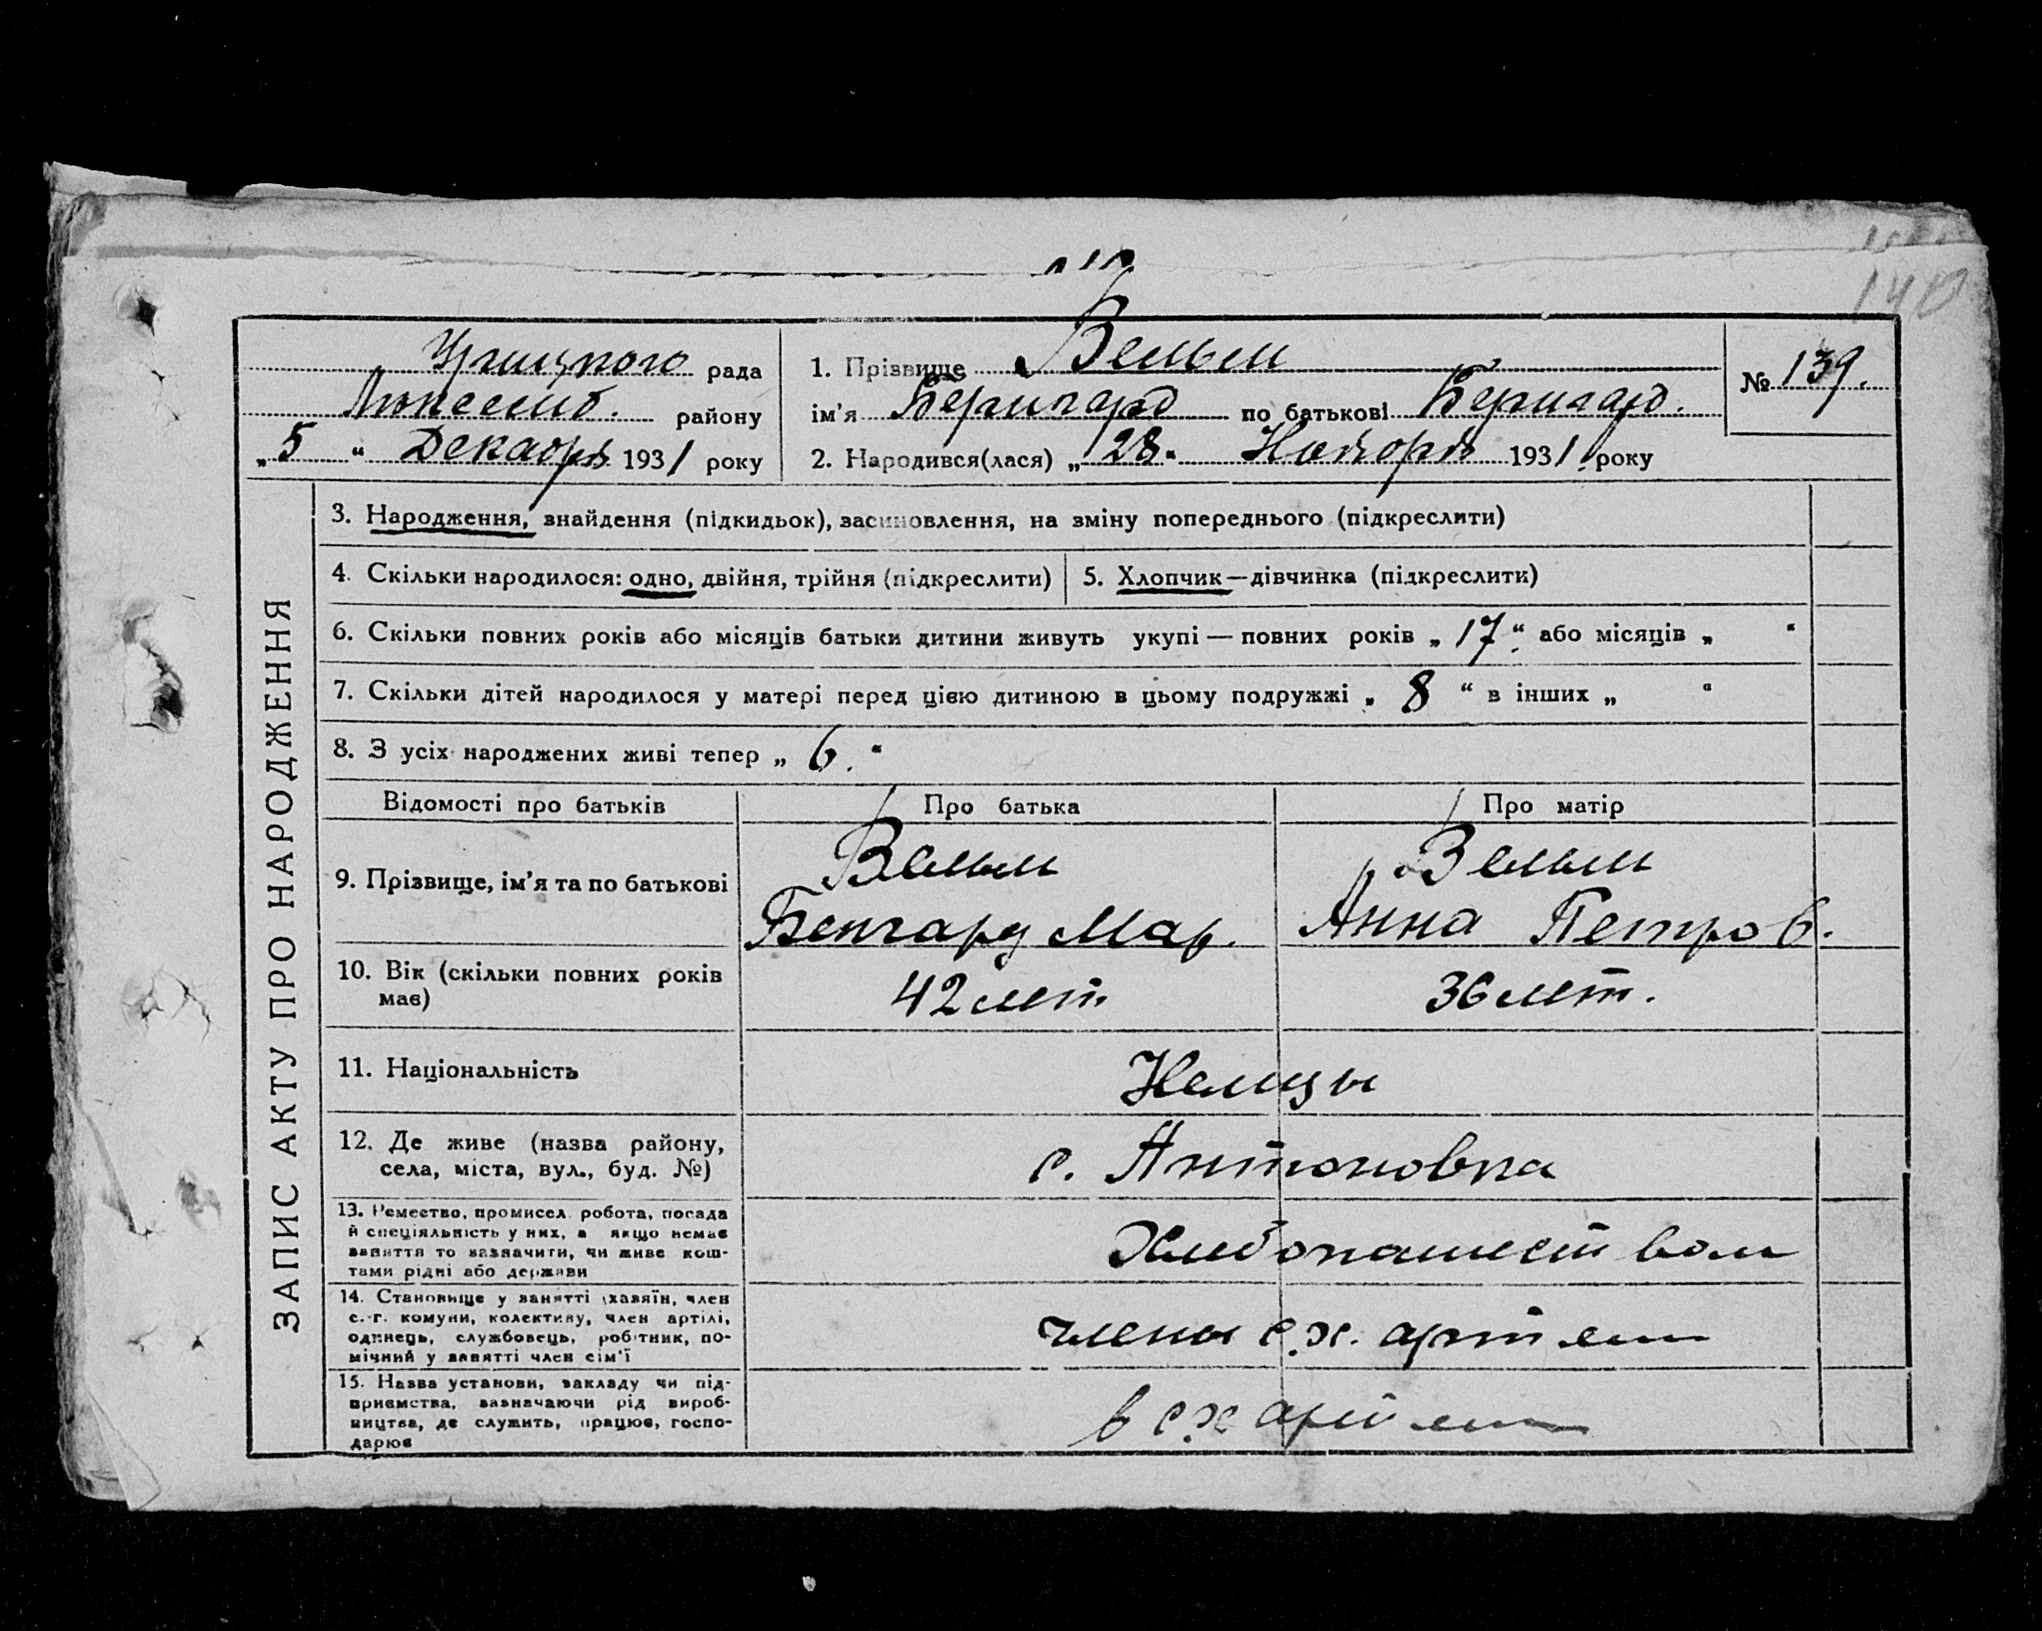 140
Урицкого рада
Люксемб. району
„5“ Декабря 1931 року
1. Прізвище Вельм
ім'я Бернгард по батькові Бернгард.
2. Народився(лася) „28“ Ноября 1931 року
№ 139.
ЗАПИС АКТУ ПРО НАРОДЖЕННЯ
3. Народження, знайдення (підкидьок), засиновлення, на зміну попереднього (підкреслити)
4. Скільки народилося: одно, двійня, трійня (підкреслити) 5. Хлопчик—дівчинка (підкреслити)
6. Скільки повних років або місяців батьки дитини живуть укупі — повних років „17“ або місяців „ “
7. Скільки дітей народилося у матері перед цією дитиною в цьому подружжі „8“ в інших „ “
8. З усіх народжених живі тепер „6.“
Відомості про батьків Про батька Про матір
9. Прізвище, ім'я та по батькові
Вельм
Бенгард Мар.
Вельм
Анна Петров.
10. Вік (скільки повних років
має)
42 лет
36 лет.
11. Національність
Немцы
12. Де живе (назва району,
села, міста, вул., буд. №)
с. Антоновка
13. Ремество, промисел, робота, посада
й спеціяльність у них, а якщо немає
заняття то зазначити, чи живе кош-
тами рідні або держави
Хлебопашеством
14. Становище у занятті (хазяїн, член
с.-г. комуни, колективу, член артілі,
одинець, службовець, робітник, по-
мічний у занятті член сім'ї
члены с.х. артели
15. Назва установи, закладу чи під-
приємства, зазначаючи рід вироб-
ництва, де служить, працює, госпо-
дарює
в с.х артели